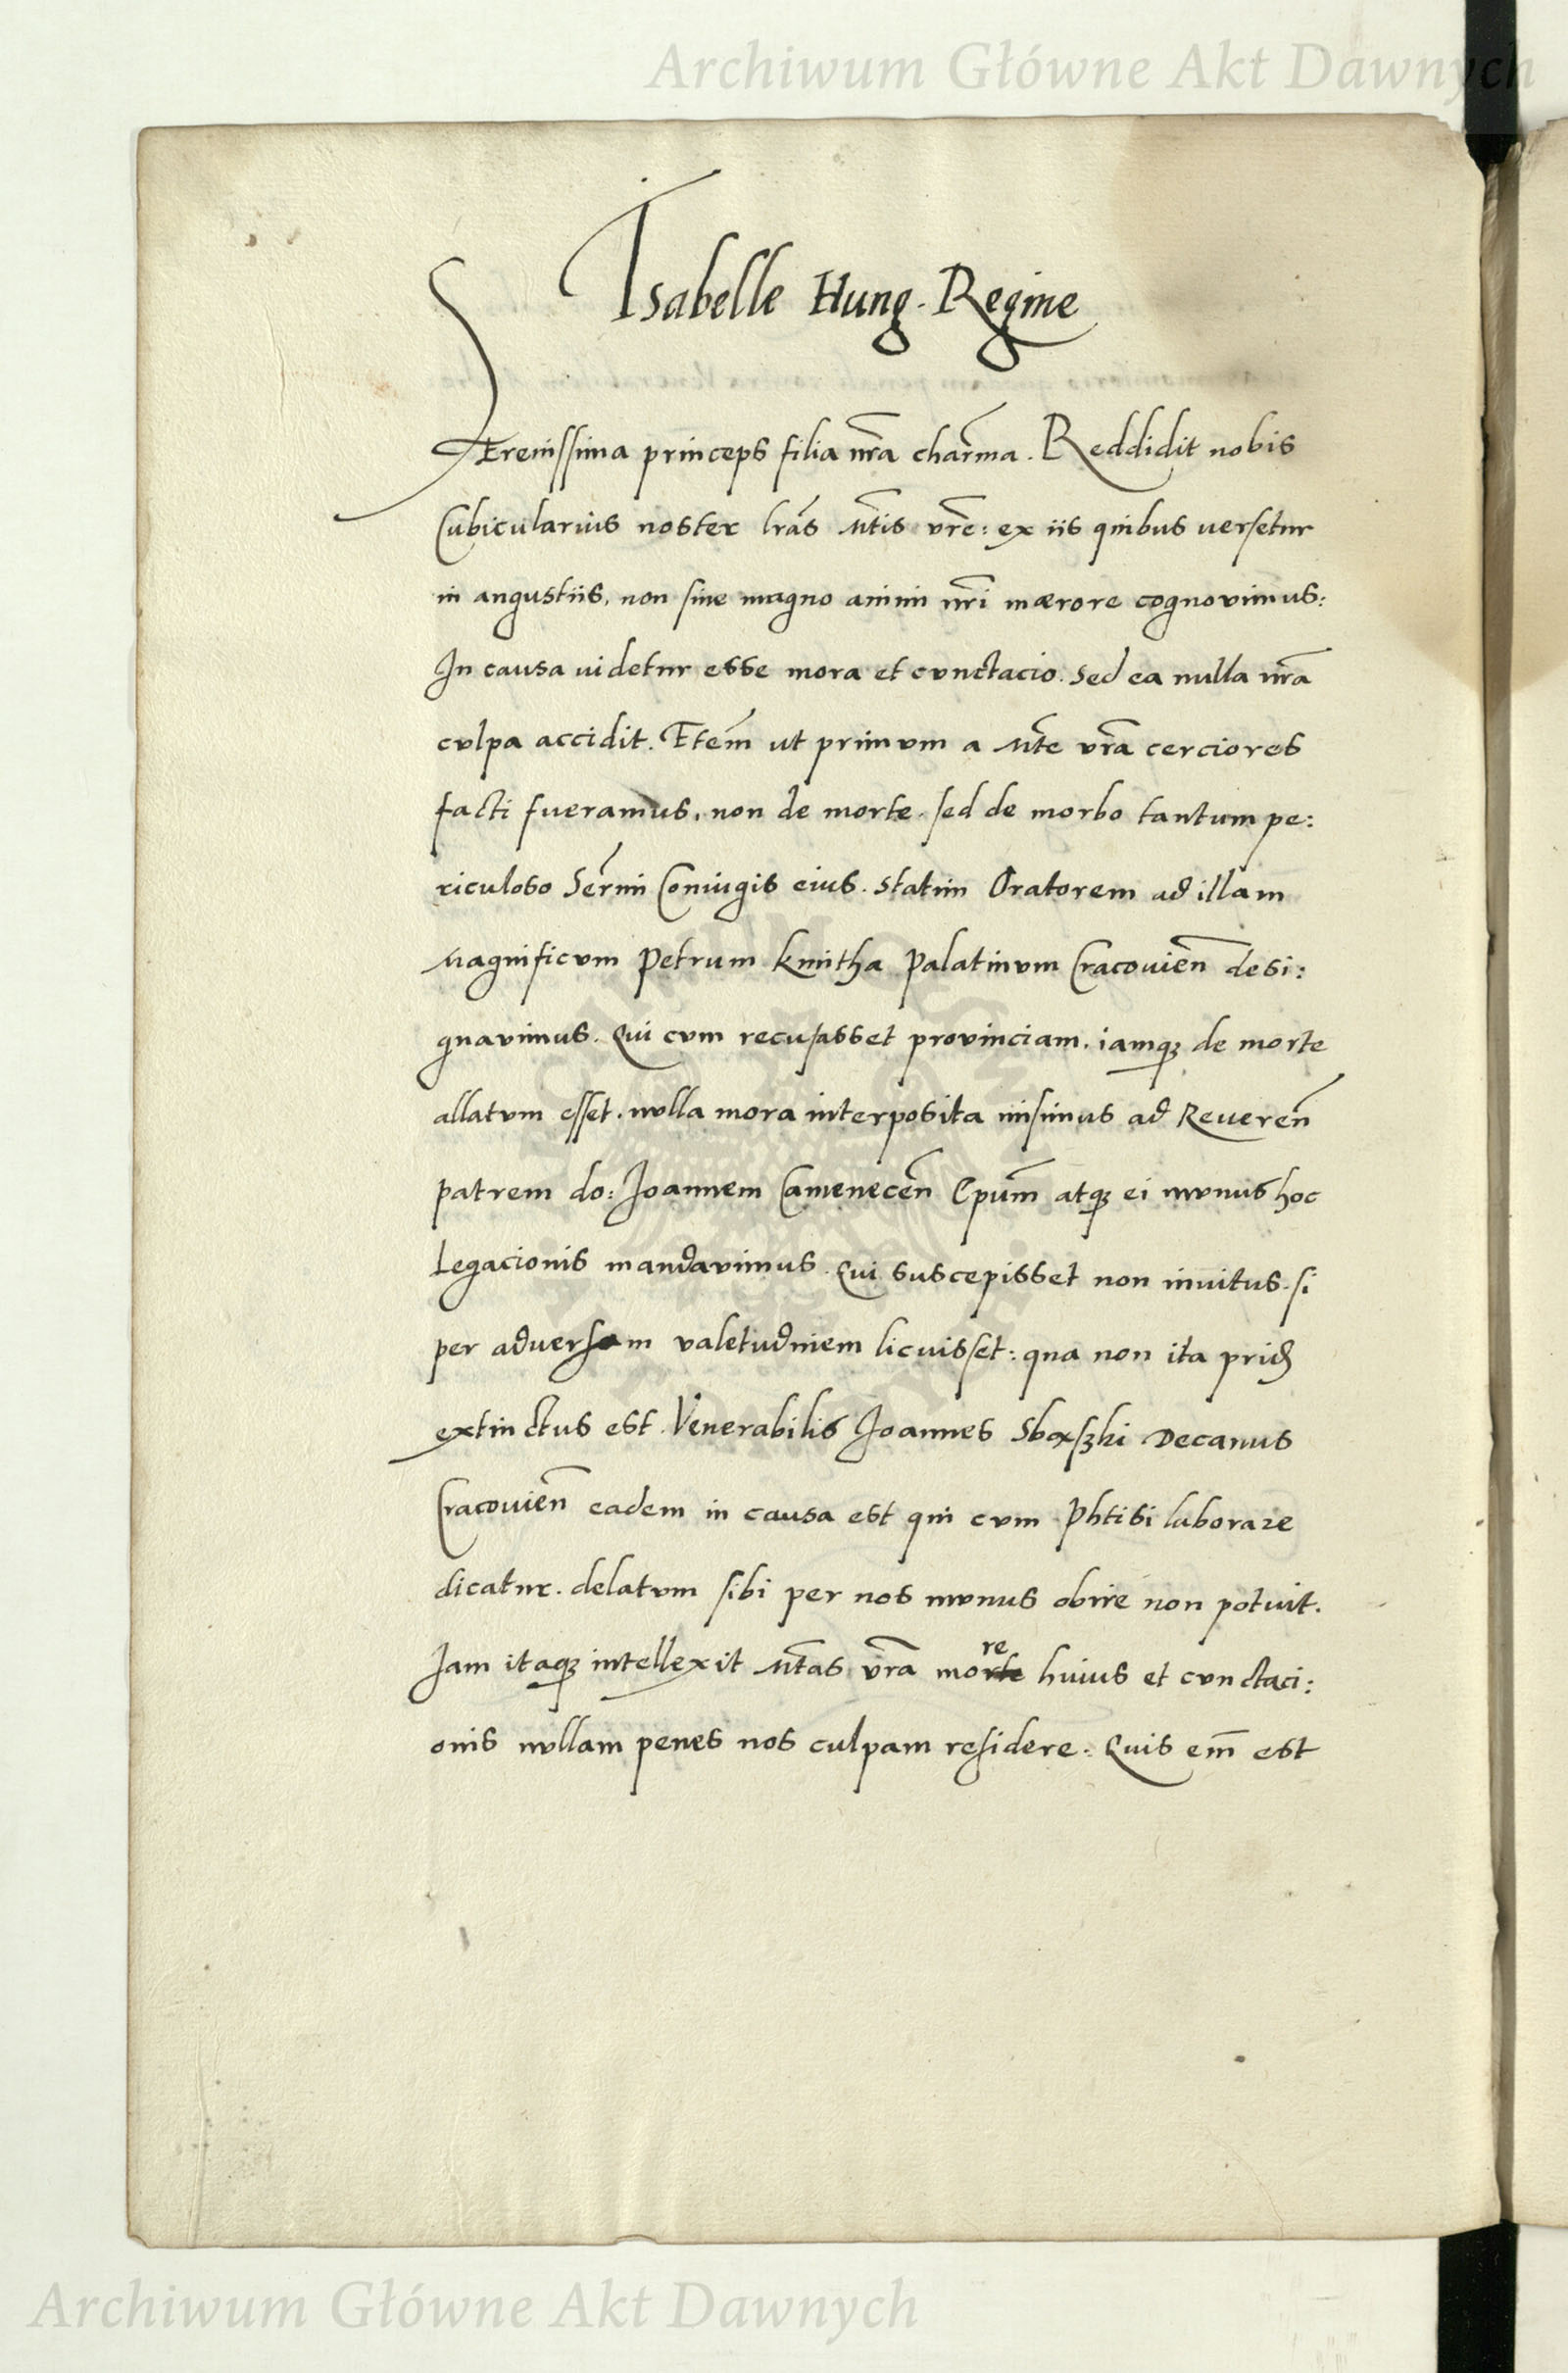 Archiwum Główne Akt Dawnych
Isabelle Hung. Regine
Serenissima princeps filia nr̃a char̃ma. Reddidit nobis
Cubicularius noster lrãs Mt̃is vr̃e: ex iis quibus uersetur
in angustiis, non sine magno animi nr̃i mærore cognovimus:
In causa uidetur esse mora et cvnctacio. Sed ea nulla nr̃a
cvlpa accidit. Etem̃ ut primvm a Mt̃e vr̃a cerciores
facti fueramus, non de morte. sed de morbo tantum pe:
riculoso Ser̃mi Coniugis eius. Statim Oratorem ad illam
Magnificvm Petrum Kmitha Palatinvm Cracouieñ desi:
gnavimus. Qui cvm recusasset provinciam. iamqꝫ de morte
allatvm esset. nvlla mora interposita misimus ad Reuereñ
patrem do: Joannem Cameneceñ Epum̃ atqꝫ ei mvnus hoc
Legacionis mandavimus. Qui suscepisset non invitus. si
per adversam valetudinem licvisset: qua non ita prid̃
extinctus est. Venerabilis Joannes Sborſzki Decanus
Cracouieñ eadem in causa est qui cvm Phtisi laborare
dicatur. delatvm sibi per nos mvnus obire non potuit.
Jam itaqꝫ intellexit Mt̃as vr̃a morte re huius et cvnctaci:
onis nvllam penes nos culpam residere. Quis em̃ est
Archiwum Główne Akt Dawnych